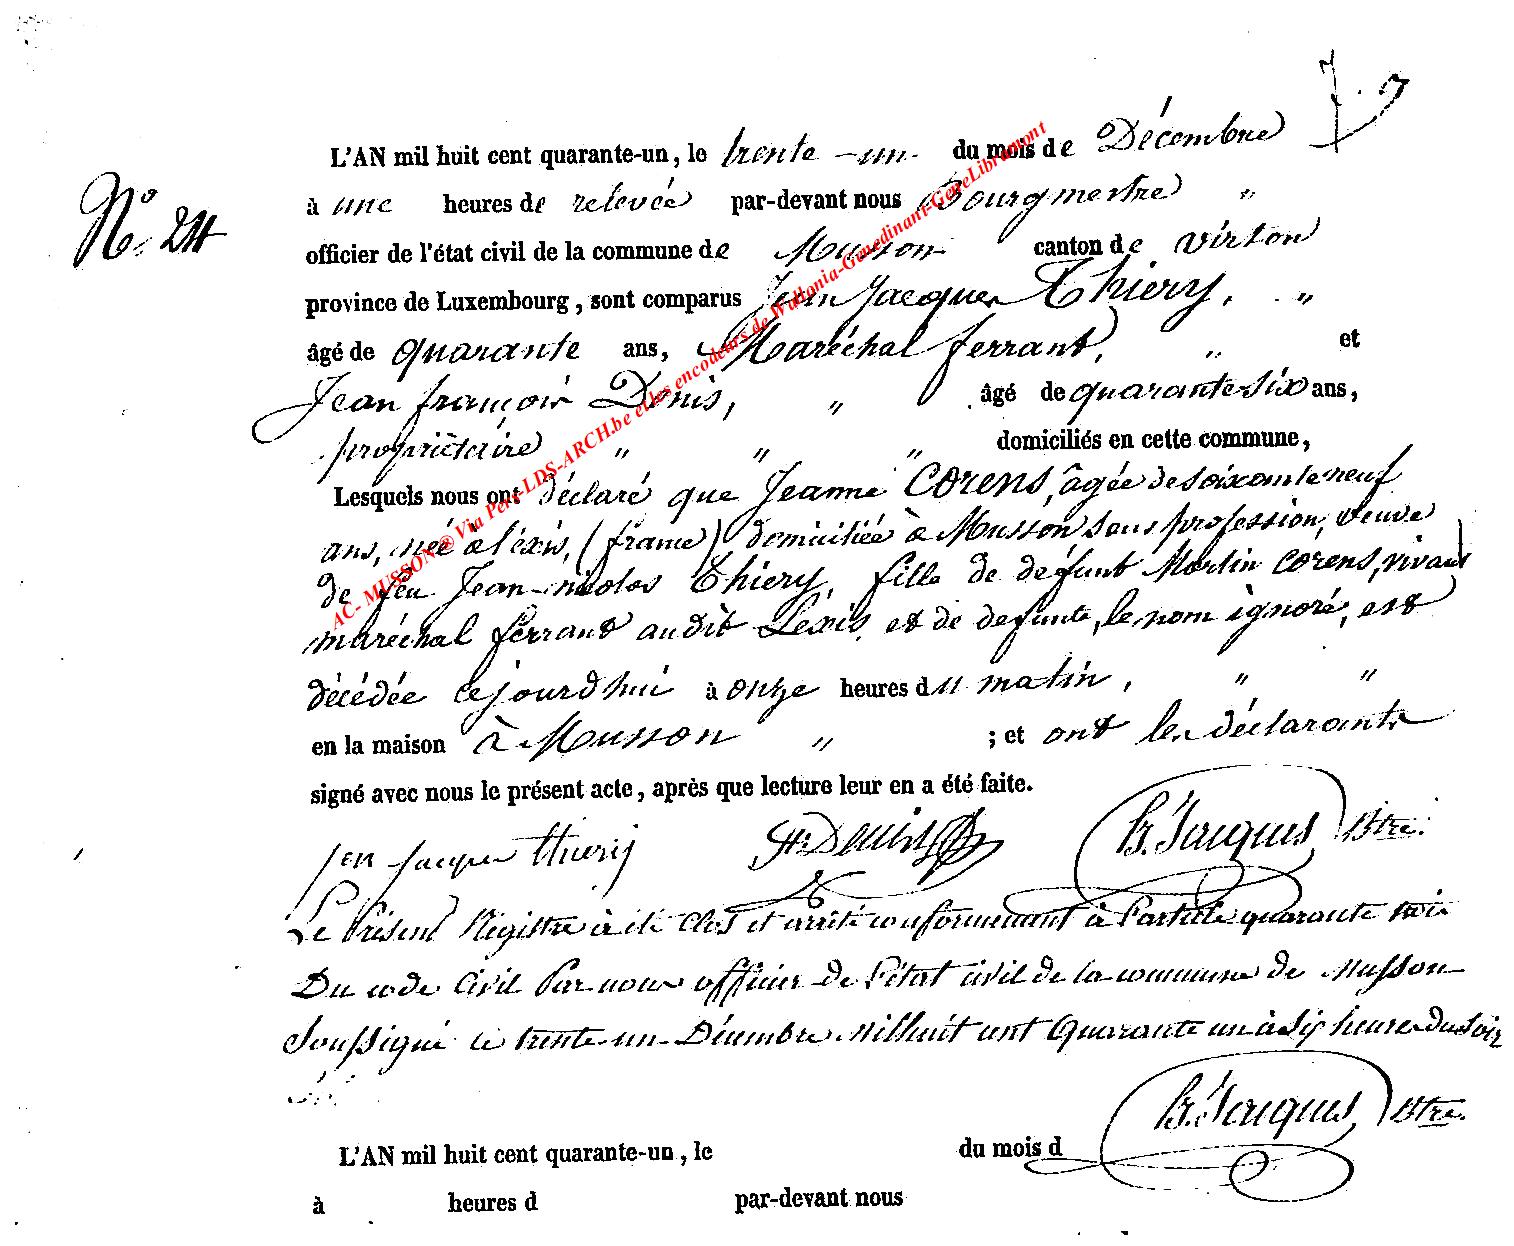 L'AN mil huit cent quarante-un, le trente-un du mois de Décembre
N° 24
à une heures de relevée par-devant nous Bourgmestre "
officier de l'état civil de la commune de Musson canton de virton
province de Luxembourg, sont comparus Jean Jacques Thiery, "
âgé de quarante ans, Maréchal ferrant, " et
Jean françois Denis, " âgé de quarante-six ans,
propriétaire " " " domiciliés en cette commune,
Lesquels nous ont déclaré que Jeanne Corens, âgée de soixante neuf
ans, née à léxis, (france) domiciliée à Musson sans profession, veuve
de feu Jean-nicolas Thiery, fille de défunt Martin Corens, vivant
maréchal ferrant audit Lexis, et de defunte, le nom ignoré, est
décédée cejourdhui à onze heures du matin, " "
en la maison à Musson " ; et ont les déclarants
signé avec nous le présent acte, après que lecture leur en a été faite.
jen jacque thiery Denis Jacques Btre.
Le Présent Régistre à été Clos et arrété conformément à l'article quarante trois
Du code Civil Par nous officier de l'état civil de la commune de Musson
Soussigné ce trente-un Décembre Milhuit cent Quarante un à Six heures du Soir
Jacques Btre.
L'AN mil huit cent quarante-un, le du mois d
à heures d par-devant nous
AC- MUSSON® Via Pers-LDS-ARCH.be et les encodeurs de Wallonia-Genedinant-GeneLibramont